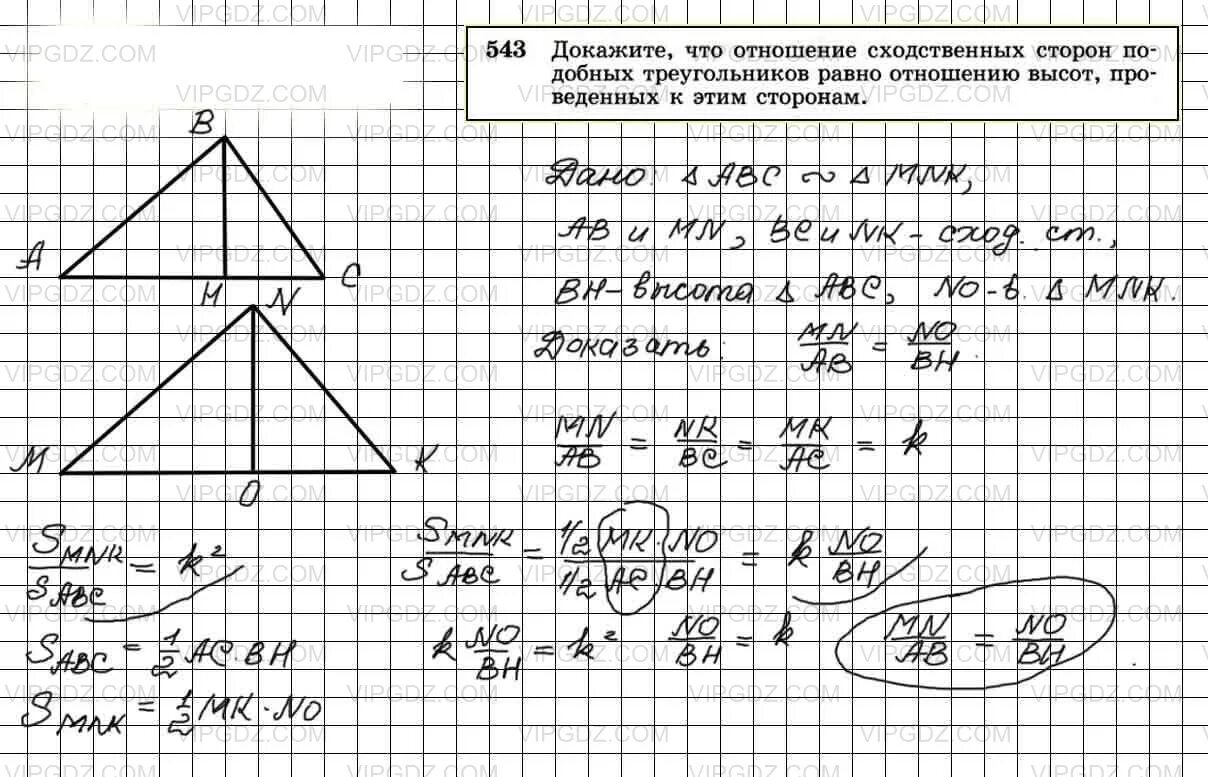 543 Докажите, что отношение сходственных сторон по-
добных треугольников равно отношению высот, про-
веденных к этим сторонам.
B
A H C
N
M O K
Дано: △ ABC ∼ △ MNK,
AB и MN, BC и NK - сход. ст.,
BH - высота △ ABC, NO - в. △ MNK.
Доказать: MN/AB = NO/BH.
MN/AB = NK/BC = MK/AC = k
S MNK / S ABC = k²
S MNK / S ABC = (1/2 MK · NO) / (1/2 AC · BH) = k NO/BH
S ABC = 1/2 AC · BH
k NO/BH = k² NO/BH = k MN/AB = NO/BH.
S MNK = 1/2 MK · NO
VIPGDZ.COM